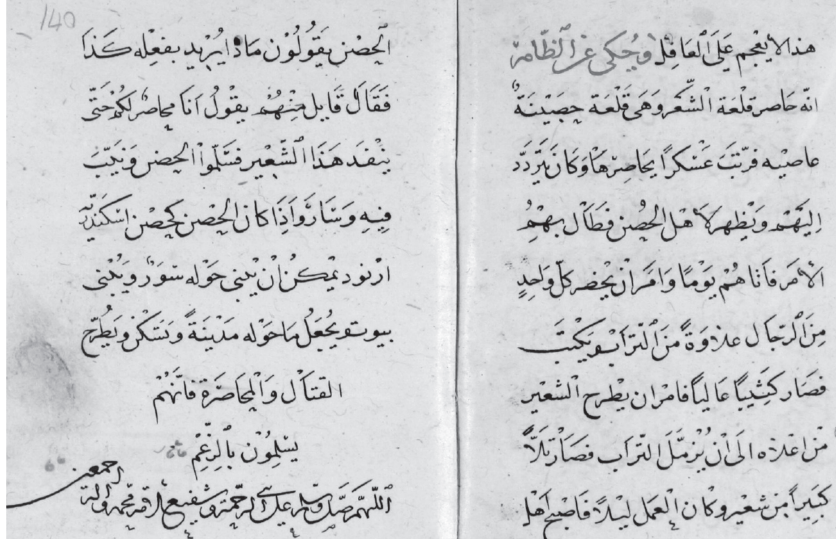 هذا لا يعجم على العاقل وحكى عن الظاهر
انه حاصر قلعة الشغر وهى قلعة حصينة
عاصيه فرتب عسكرا يحاصرها وكان يتردد
اليهم ويظهر لاهل الحصن فطال بهم
الامر فاتاهم يوما وامر ان يحضر كل واحد
من الرجال علاوة من التراب ويكبّ
فصار كثيبا عاليا فامر ان يطرح الشعير
من اعلاه الى ان يزمّل التراب فصار تلّا
كبيرا من شعير وكان العمل ليلا فاصبح اهل
140
الحصن يقولون ماذا يريد بفعله كذا
فقال قايل منهم يقول انا محاصركم حتى
ينفد هذا الشعير فسلموا الحصن ورتب
فيه وسار واذا كان الحصن كحصن
يمكن ان يبنى حوله سور ويبنى
بيوت ويجعل ما حوله مدينة وتسكن ويطرح
القتال والمحاصرة فانهم
يسلمون بالرغم
اللهم صل وسلم على نبي الرحمة وشفيع الامة محمد واله
اجمعين